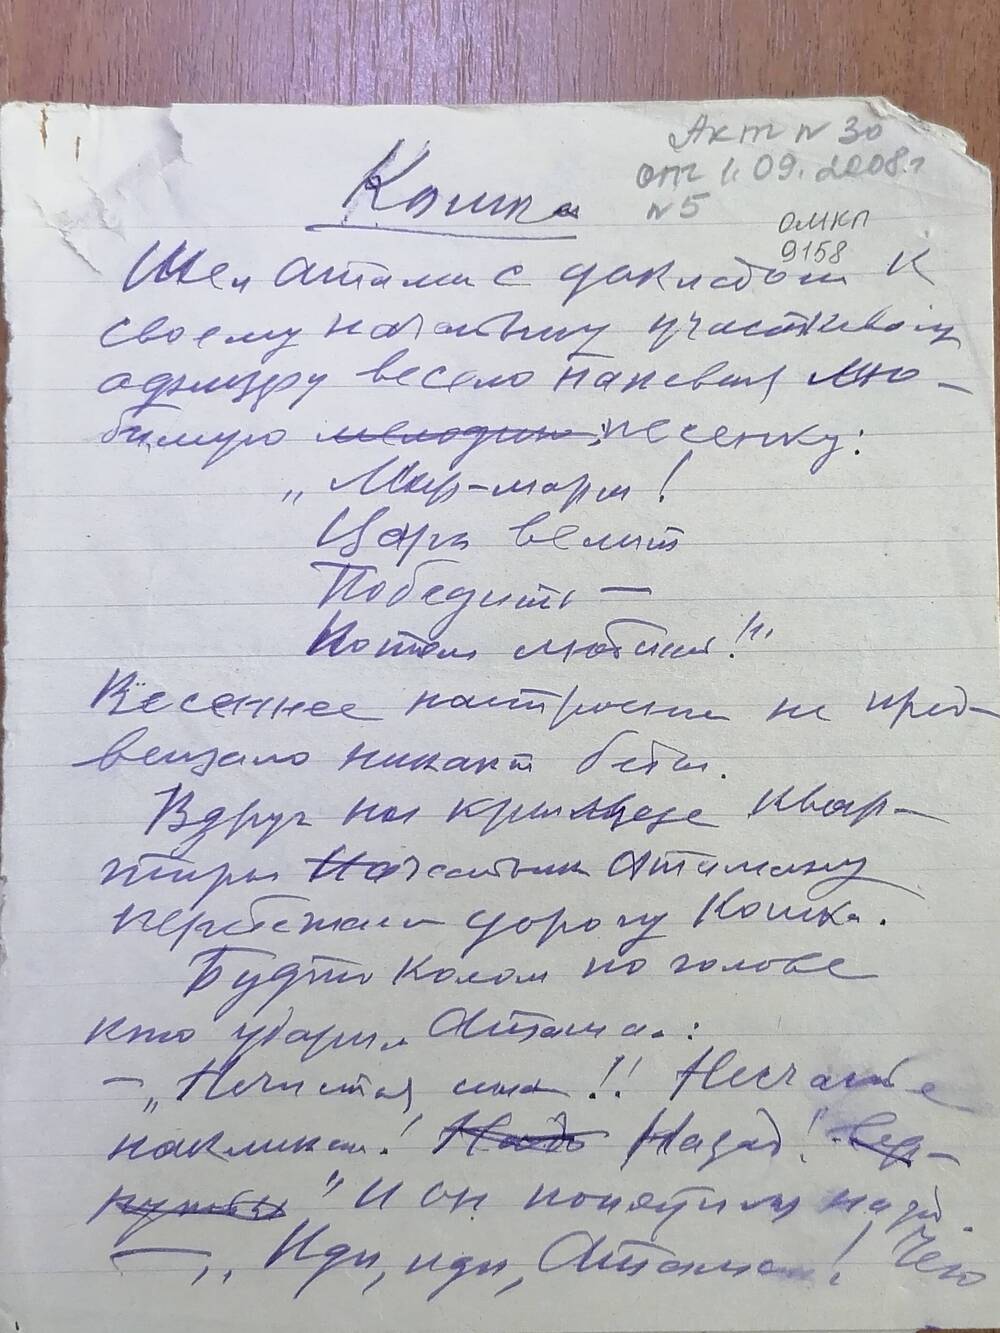 Акт № 30
от 1.09.2008г
№5
ОМКП
9158
Кошка
Шел Атаман с докладом к
своему начальнику участковому
офицеру весело напевая лю-
бимую мелодию песенку:
„Мир-марш!
Царь велит
Победить —
Весеннее настроение не пред-
вещало никакой беды.
Вдруг на крыльце квар-
тиры начальника Атаману
перебежала дорогу Кошка.
Будто колом по голове
кто ударил Атамана:
— „Нечистая сила!! Несчастье
накликала! Надо Назад! Вер-
нуться" и он попятился назад.
— „Иди, иди, Атаман! Чего